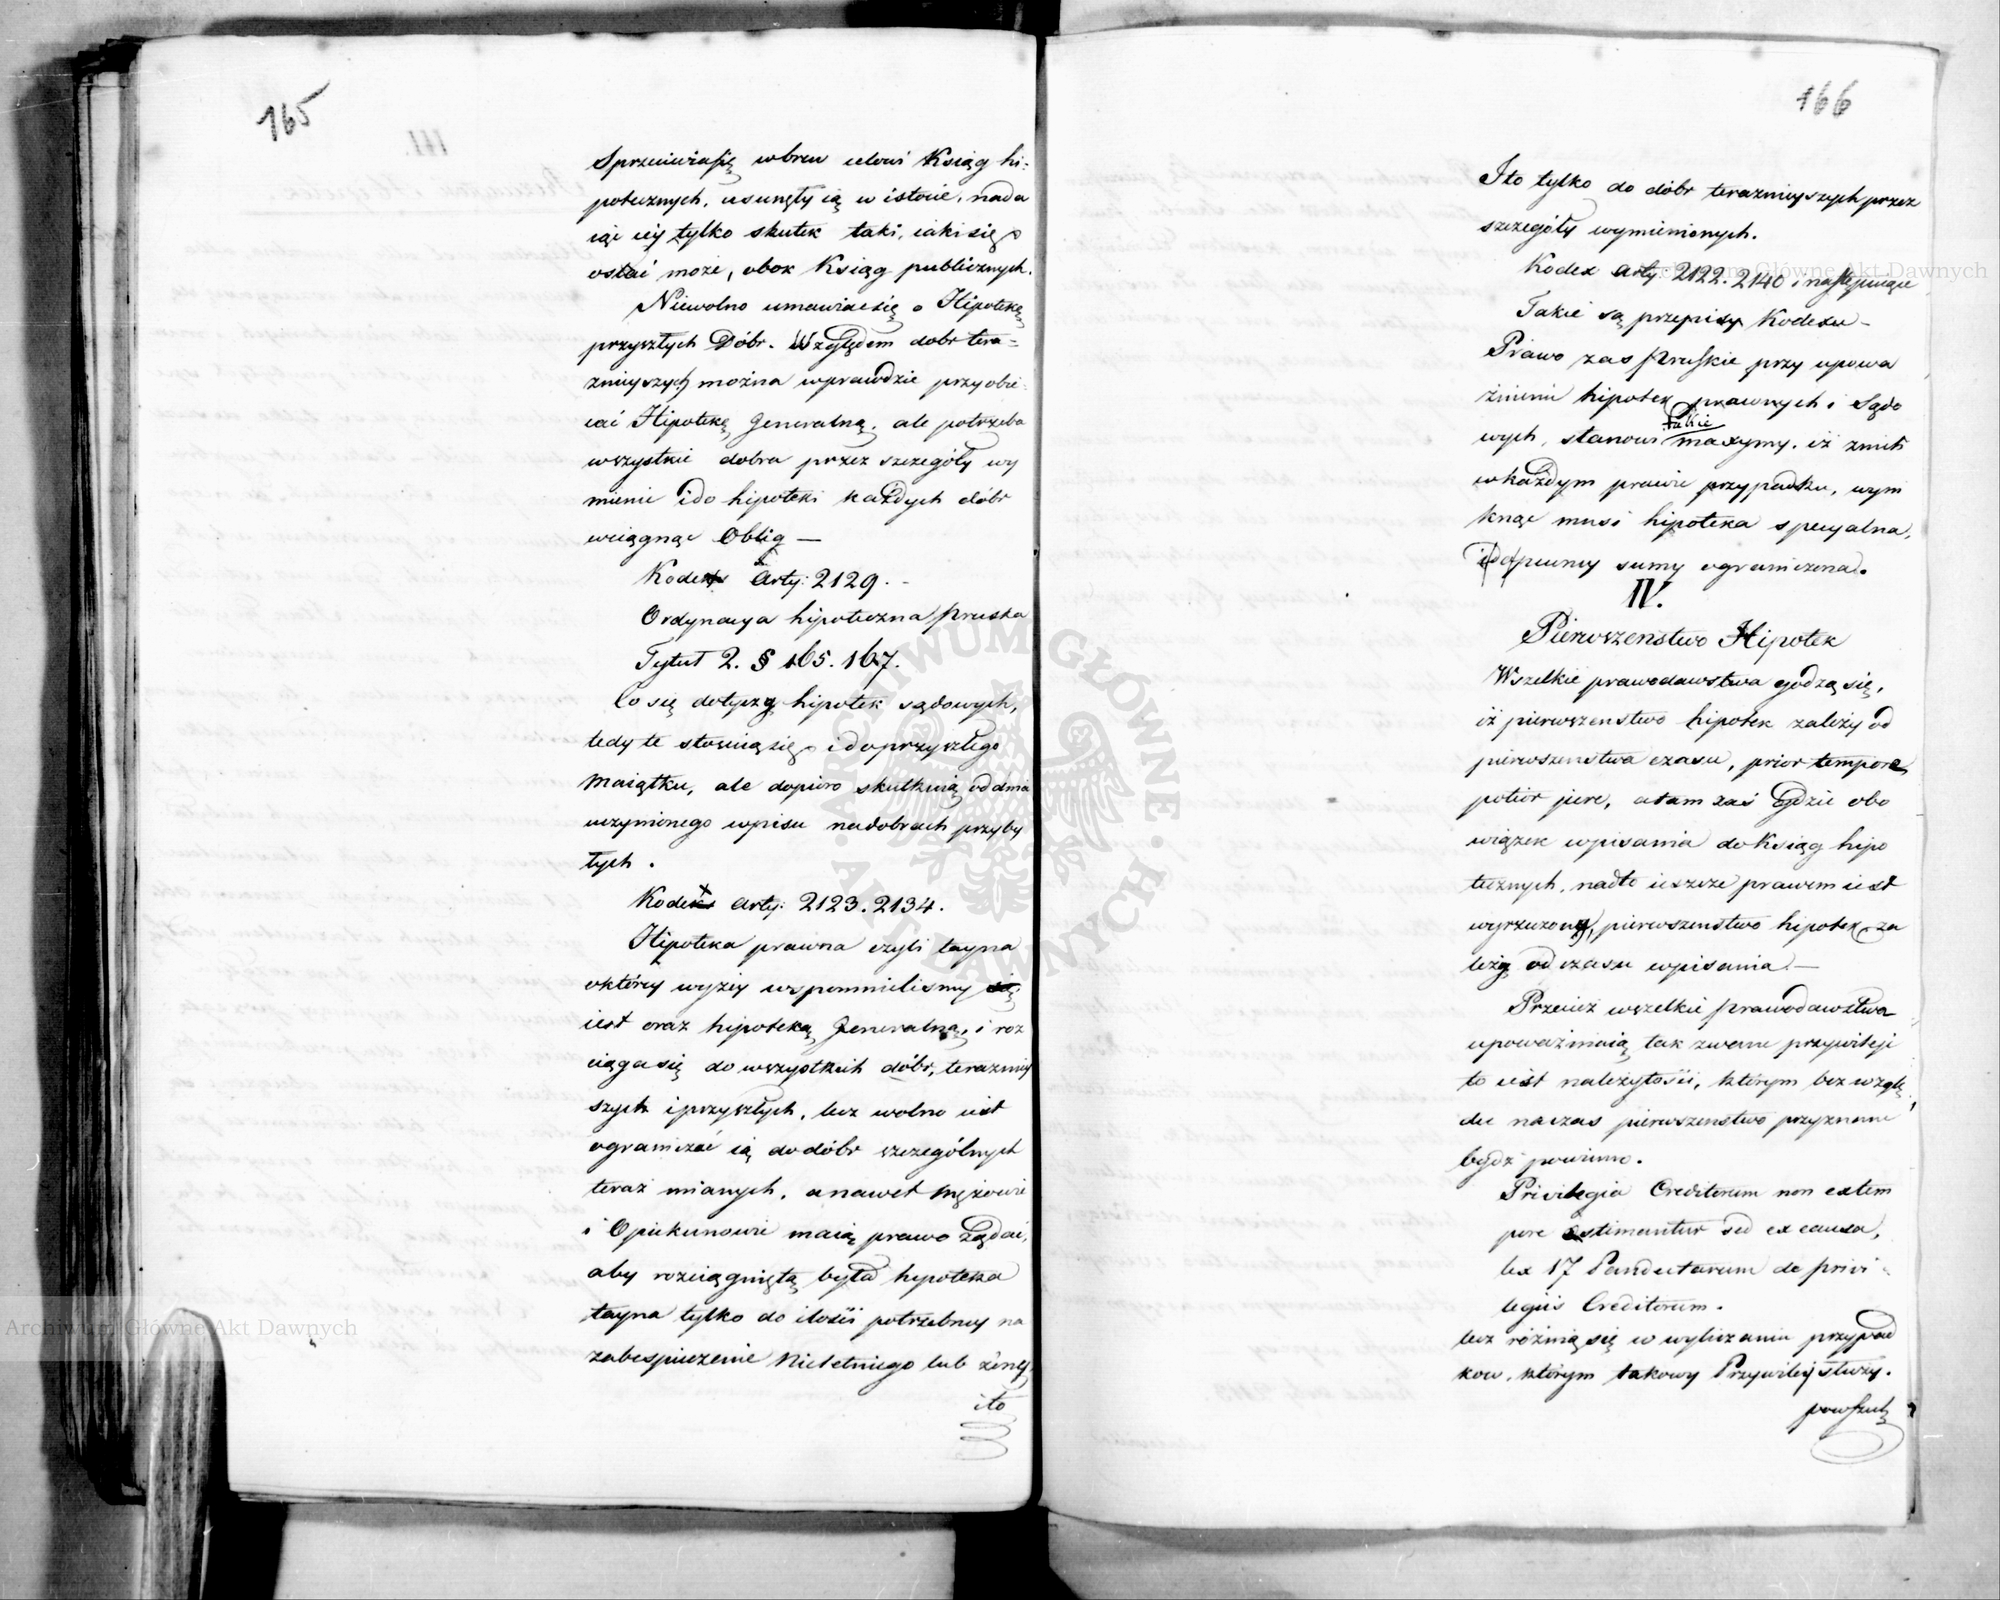 165
Sprzeciwia się wbrew celowi Ksiąg hi-
potecznych, usunęły ią w istocie, nada
iąc iéy tylko skutek taki, iaki się
ostać może, obok Ksiąg publicznych.
Niewolno umawiać się o Hipotekę
przyszłych Dóbr. Względem dobr tera-
znieyszych można wprawdzie przyobie-
cać Hipotekę Generalną, ale potrzeba
wszystkie dobra przez szczegóły wy
mienić i do hipoteki każdych dóbr
wciągnąć Oblig —
Kodex Arty: 2129. -
Ordynacya hipoteczna pruska
Tytuł 2. § 165. 167.
Co się dotyczy hipotek sądowych,
tedy te stosuią się i do przyszłego
Maiątku, ale dopiero skutkuią od dnia
uczynionego wpisu na dobrach przyby
łych.
Kodex Arty: 2123. 2134.
Hipoteka prawna czyli tayna
o któréy wyżéy wspomnieliśmy
iest oraz hipoteką Generalną, i roz
ciąga się do wszystkich dóbr, teraznieÿ
szych i przyszłych, lecz wolno iest
ograniczać ią do dóbr szczególnych
teraz mianych, a nawet Mężowie
i Opiekunowie maią prawo żądać,
aby rozciągniętą była hypoteka
tayna tylko do ilości potrzebney na
zabespieczenie Nieletniego lub żony
ito
166
I to tylko do dóbr teraznieyszych przez
szczegóły wymienionych.
Kodex Arty: 2122. 2140 i następuiące
Takie są przepisy Kodexu -
Prawo zas Pruskie przy upowa
żnieniu hipotek prawnych i Sądo
takie
wych, stanowi maxymy, iż
w każdym prawie przypadku, wym
knąć musi hipoteka specyalna,
i do pewney sumy ograniczona.
IV.
Pierwszenstwo Hipotek
Wszelkie prawodawstwa godzą się,
iż pierwszenstwo hipotek zależy od
pierwszenstwa czasu, prior tempore
potior jure, a tam zaś Gdzie obo
wiązek wpisania do Ksiąg hipo
tecznych, nadto ieszcze prawem iest
wyrzeczony, pierwszenstwo hipotek za
leży od czasu wpisania —
Przecież wszelkie prawodawstwa
upoważniaią tak zwane przywileje
to iest należytości, którym bez wzglę
du na czas pierwszenstwo przyznane
bydź powinno.
Privilegia Creditorum non extem
pore estimantur sed ex causa,
lex 17 Pandectarum de privi-
legiis Creditorum.
lecz różnią się w wyliczaniu przypad
kow, którym takowy Przywiléj służy.
powszech
Archiwum Główne Akt Dawnych
Archiwum Główne Akt Dawnych
ARCHIWUM GŁÓWNE · AKT DAWNYCH ·